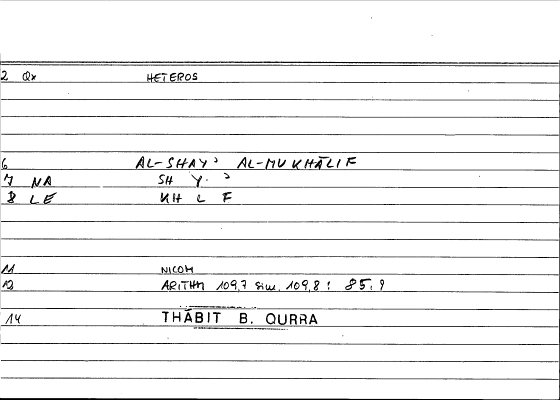 2 Qx HETEROS
6 AL-SHAYʾ AL-MUKHĀLIF
7 NA SH Y ʾ
8 LE KH L F
11 NICOM
12 ARITHM 109,7 sim. 109,8 : 85,9
14 THĀBIT B. QURRA